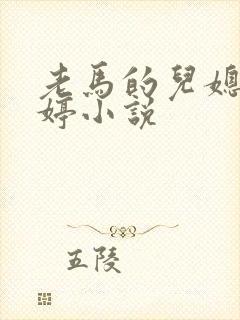 老馬的兒媳
婷小說
五陵